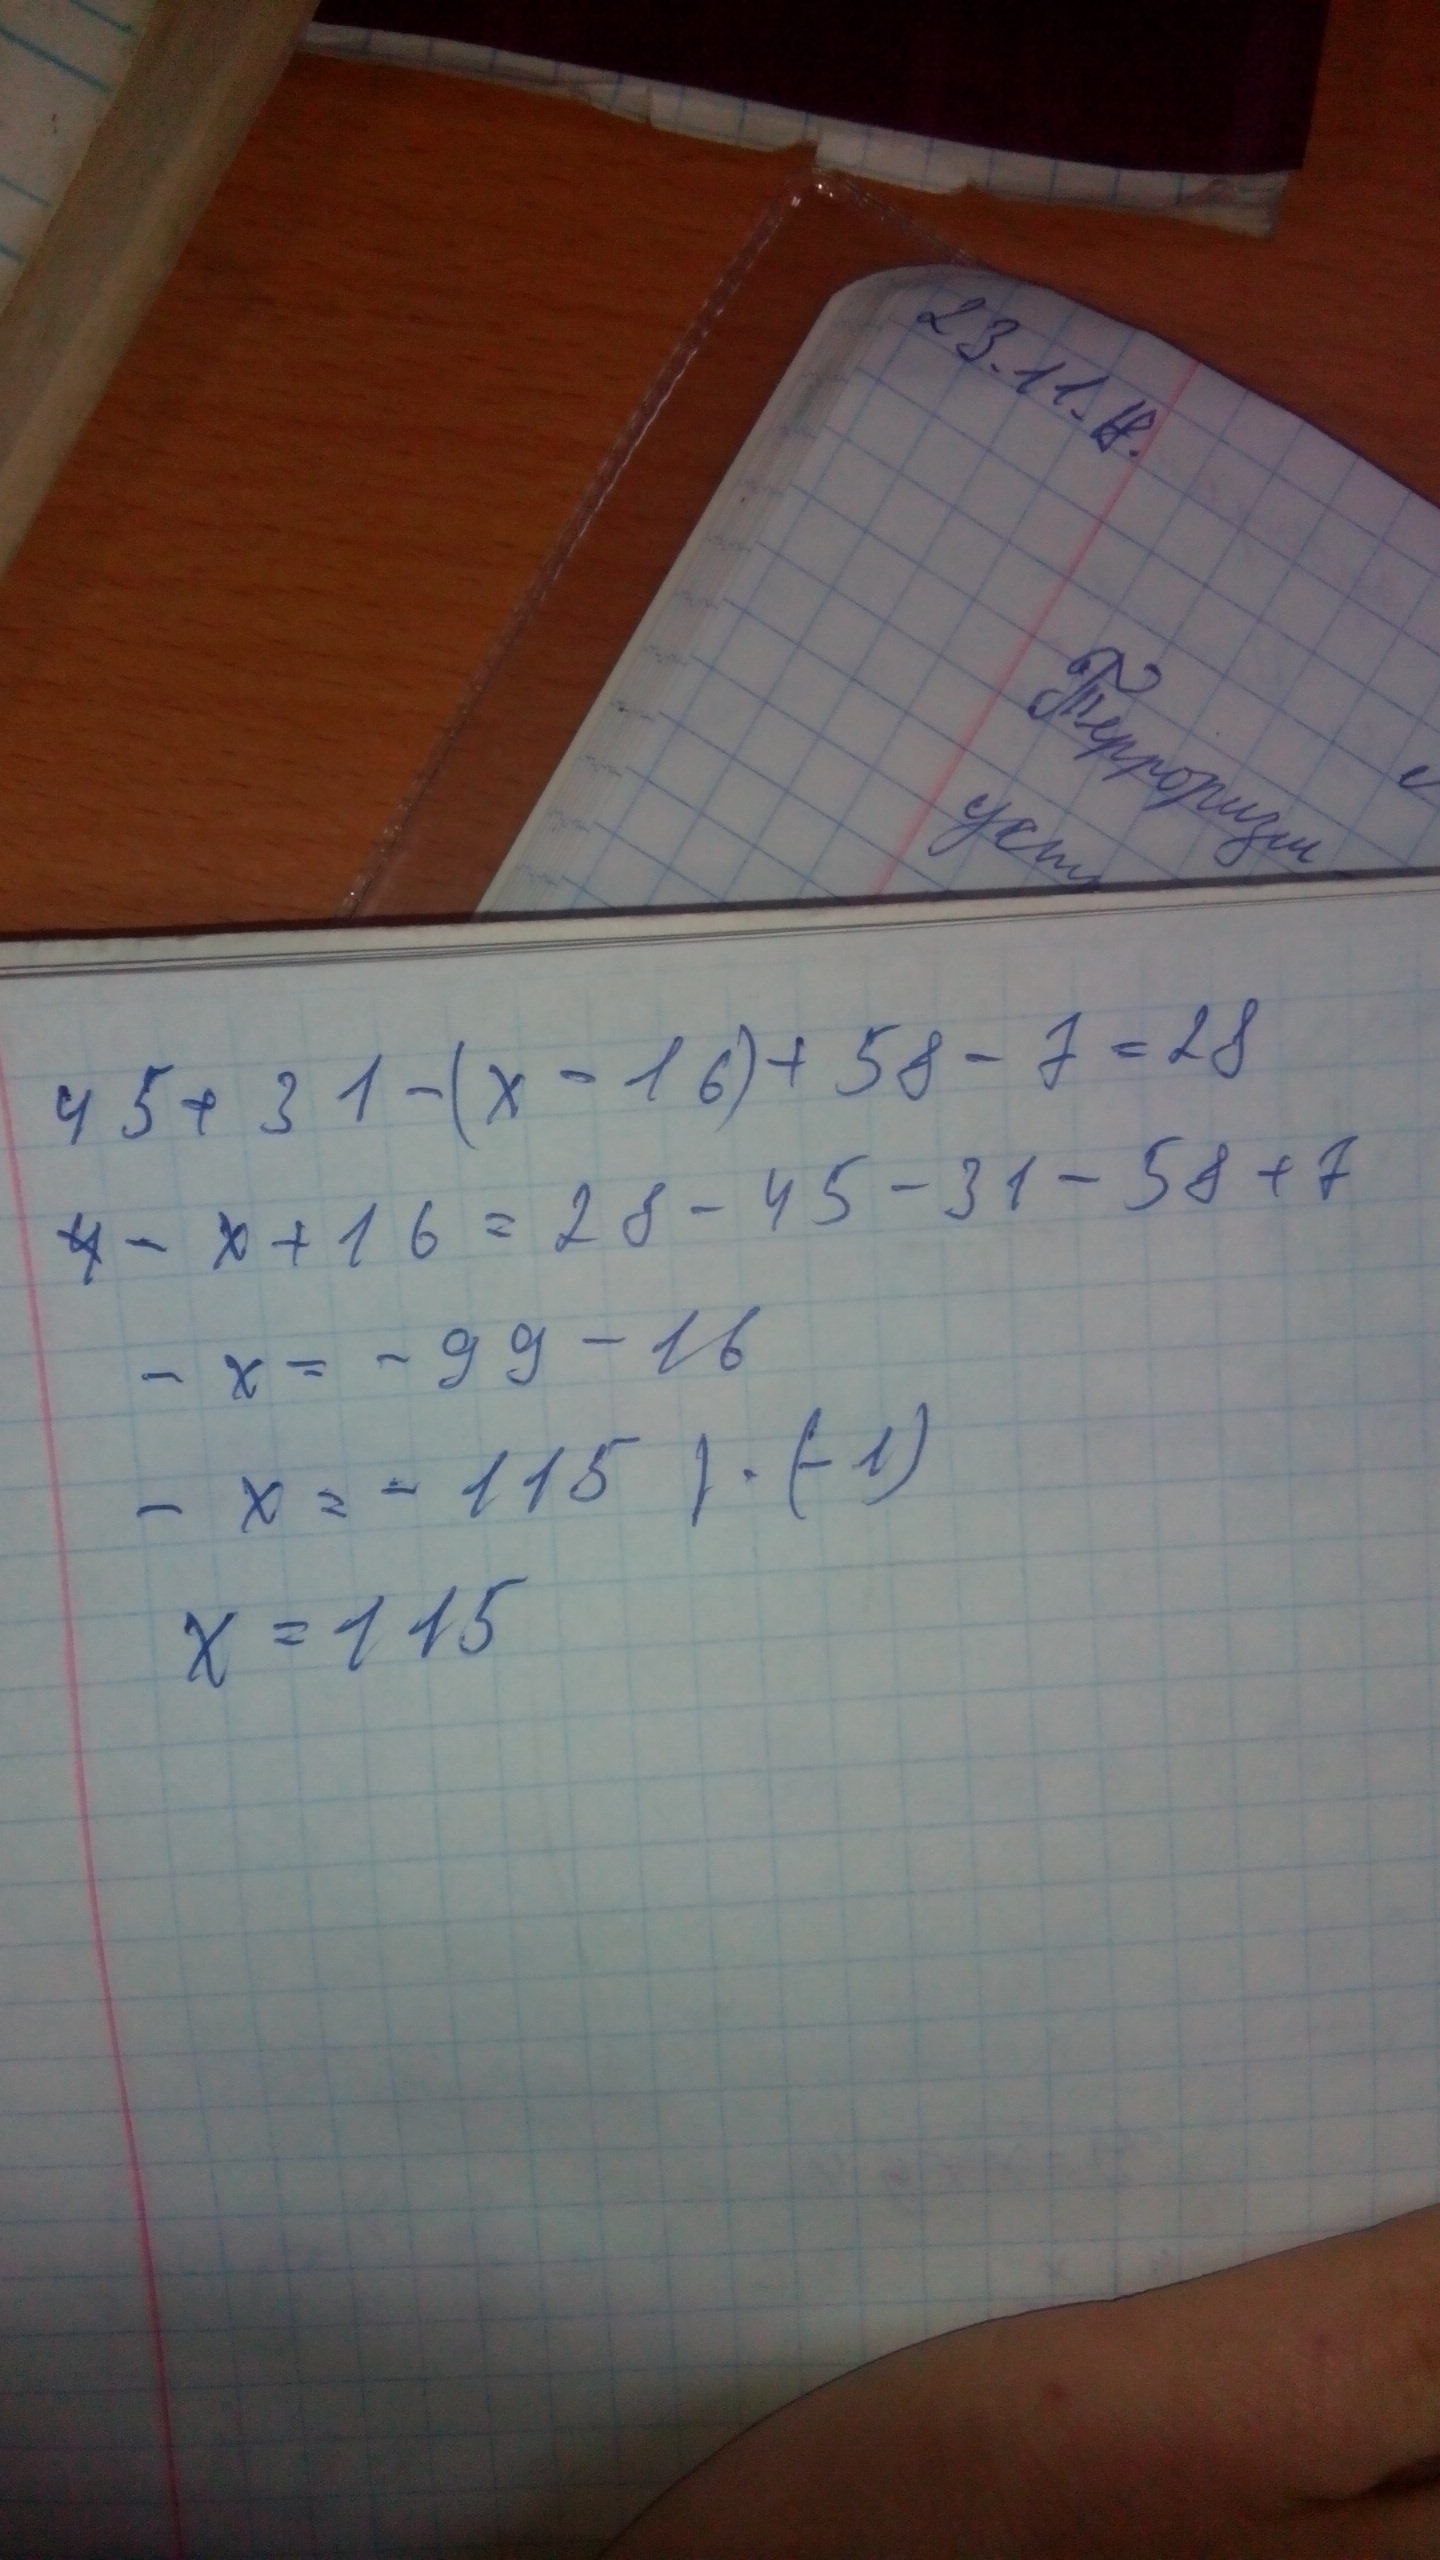 23.11.
Терроризм
45+31-(x-16)+58-7=28
- x+16=28-45-31-58+7
- x=-99-16
- x=-115 | · (-1)
x=115